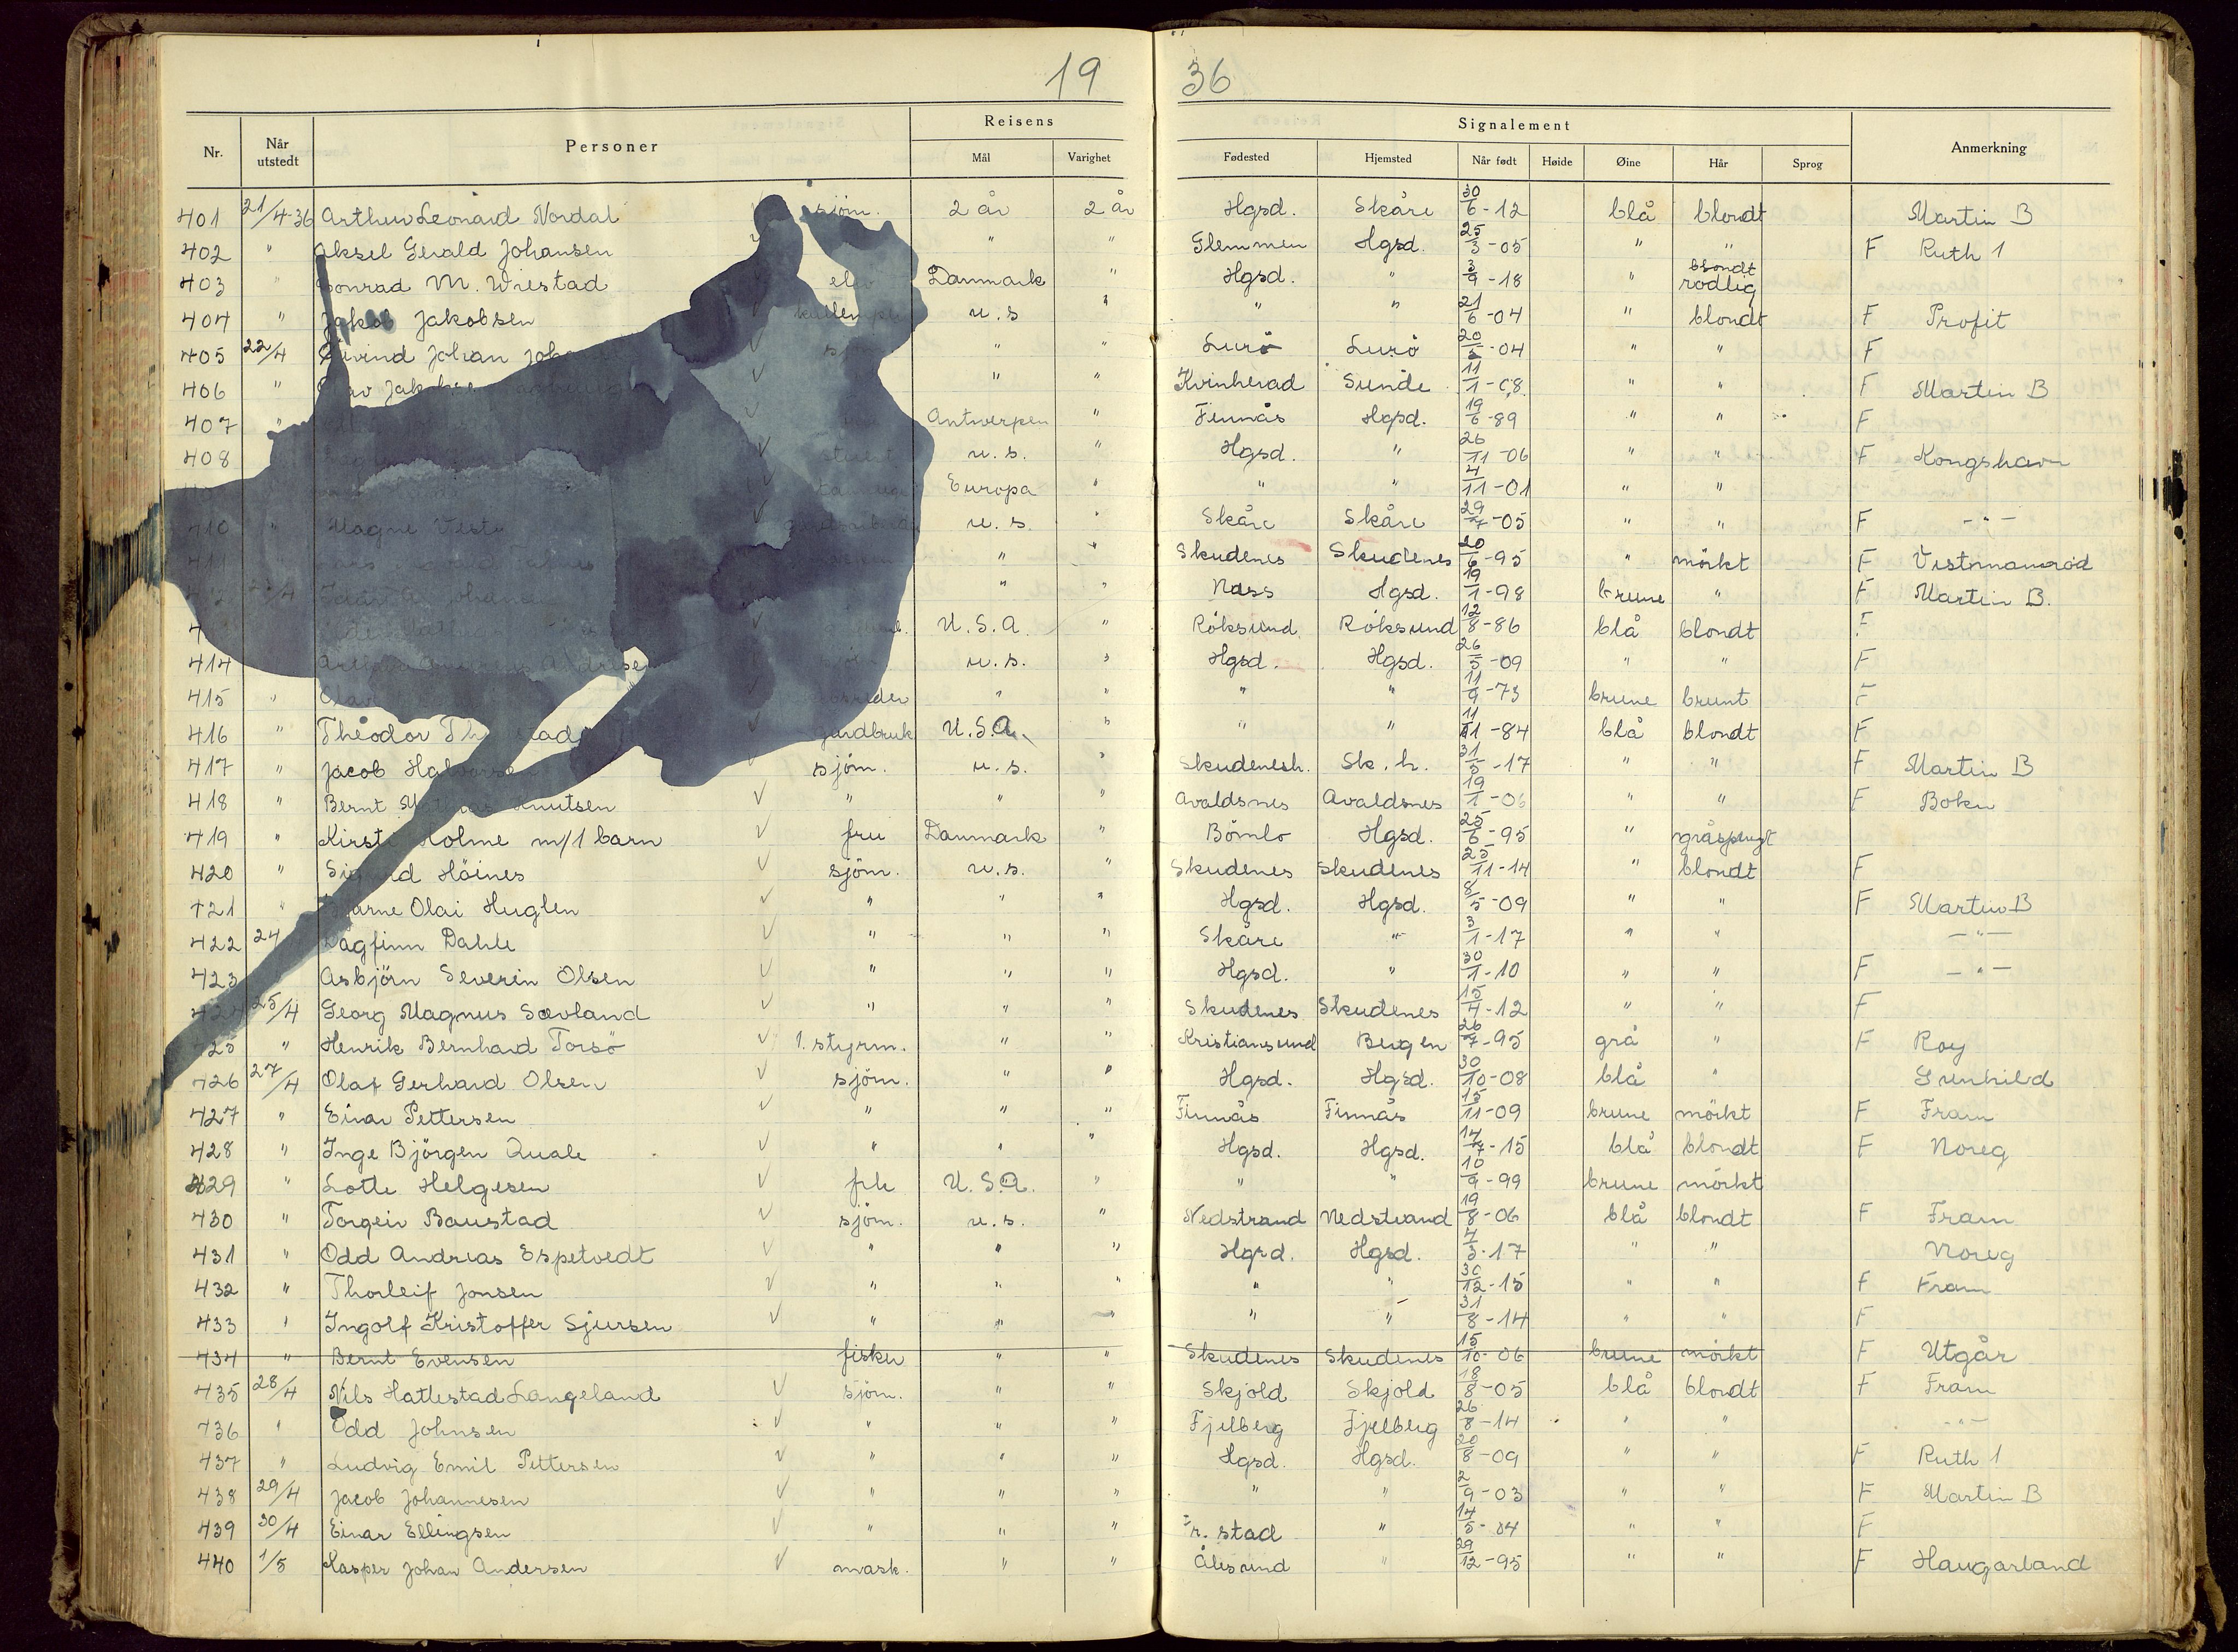 19 36
Nr. Når utstedt Personer Reisens Mål Varighet Signalement Fødested Hjemsted Når født Høide Øine Hår Sprog Anmerkning
401 21/4-36 Arthur Leonard Nordal sjöm. 2 år 2 år Hgsd. Skåre 30/6-12 blå blondt Martin B
402 " Aksel Gerald Johansen " " Glemmen Hgsd. 25/3-05 " " F Ruth 1
403 " Conrad M. Wrestad elev Danmark " Hgsd. " 3/9-18 " blondt rödlig
404 " Jakob Jakobsen u.s " " " 21/6-04 " blondt F Profit
405 22/4 Eivind Johan " " Lurö Lurö 20/5-04 " " F
406 " " " Kvinherad Sunde 11/1-08 " " F Martin B
407 " Antwerpen " Finnås Hgsd. 19/6-89 " " F
408 u.s. " Hgsd. " 26/11-06 " " F Kongshavn
Europa " " " 4/11-01 " "
410 " Magne u.s. " Skåre Skåre 29/7-05 " " F -"-
411 " " Skudenes Skudenes 20/6-95 " mörkt F
" " Næss Hgsd. 19/1-98 brune " F Martin B.
U.S.A. " Röksund Röksund 12/8-86 blå blondt F
414 u.s. " Hgsd. Hgsd. 26/5-09 " " F
415 " " " " " 11/9-73 brune brunt F
416 " Theodor jordbruk U.S.A. " " " 11/11-84 blå blondt F
417 " Jacob Halvorsen sjöm. u.s. " Skudenesh. Sk.h. 31/5-17 " " F Martin B
418 " Bernt Mathias Knutsen " " " Avaldsnes Avaldsnes 19/1-06 " " F Bokn
419 " Kirsti Holme m/1 barn fru Danmark " Bömlo Hgsd. 25/6-95 " gråsprengt
420 " Sigurd Höines sjöm. u.s. " Skudenes Skudenes 25/11-14 " blondt F
421 " Bjarne Olai Huglen " " " Hgsd. Hgsd. 8/5-09 " " F Martin B
422 24 Dagfinn Dahle " " " Skåre " 3/1-17 " " -"-
423 Asbjörn Severin Olsen " " " Hgsd. " 30/1-10 " " F -"-
424 25/4 Georg Magnus Sævland " " " Skudenes Skudenes 15/4-12 " " F
425 " Henrik Bernhard Torsö 1. styrm. " " Kristiansund Bergen 26/7-95 grå " F Roy
426 27/4 Olaf Gerhard Olsen sjöm. " " Hgsd. Hgsd. 30/10-08 blå " Gunhild
427 " Einar Pettersen " " " Finnås Finnås 15/11-09 brune mörkt F Fram
428 " Inge Björgen Quale " " " Hgsd. Hgsd. 14/7-15 blå blondt F Noreg
429 " Lotte Helgesen frk U.S.A. " " " 10/9-99 brune mörkt
430 " Torgeir Baustad sjöm. u.s. " Nedstrand Nedstrand 19/8-06 blå blondt F Fram
431 " Odd Andreas Espetvedt " " " Hgsd. Hgsd. 7/3-17 " " Noreg
432 " Thorleif Jonsen " " " " " 30/12-15 " " F Fram
433 " Ingolf Kristoffer Sjursen " " " " " 31/8-14 " " F
434 " Bernt Evensen fisker " " Skudenes Skudenes 15/10-06 brune mörkt F Utgår
435 28/4 Nils Hatlestad Langeland sjöm. " " Skjold Skjold 18/8-05 blå blondt F Fram
436 " Odd Johnsen " " " Fjelberg Fjelberg 26/8-14 " " -"-
437 " Ludvig Emil Pettersen " " " Hgsd. Hgsd. 20/8-09 " " F Ruth 1
438 29/4 Jacob Johannesen " " " " " 2/9-03 " " F Martin B
439 30/4 Einar Ellingsen " " " Fr. stad " 14/5-04 " " F
440 1/5 Kasper Johan Andersen mask. " " Ålesund " 29/12-95 " " F Haugarland